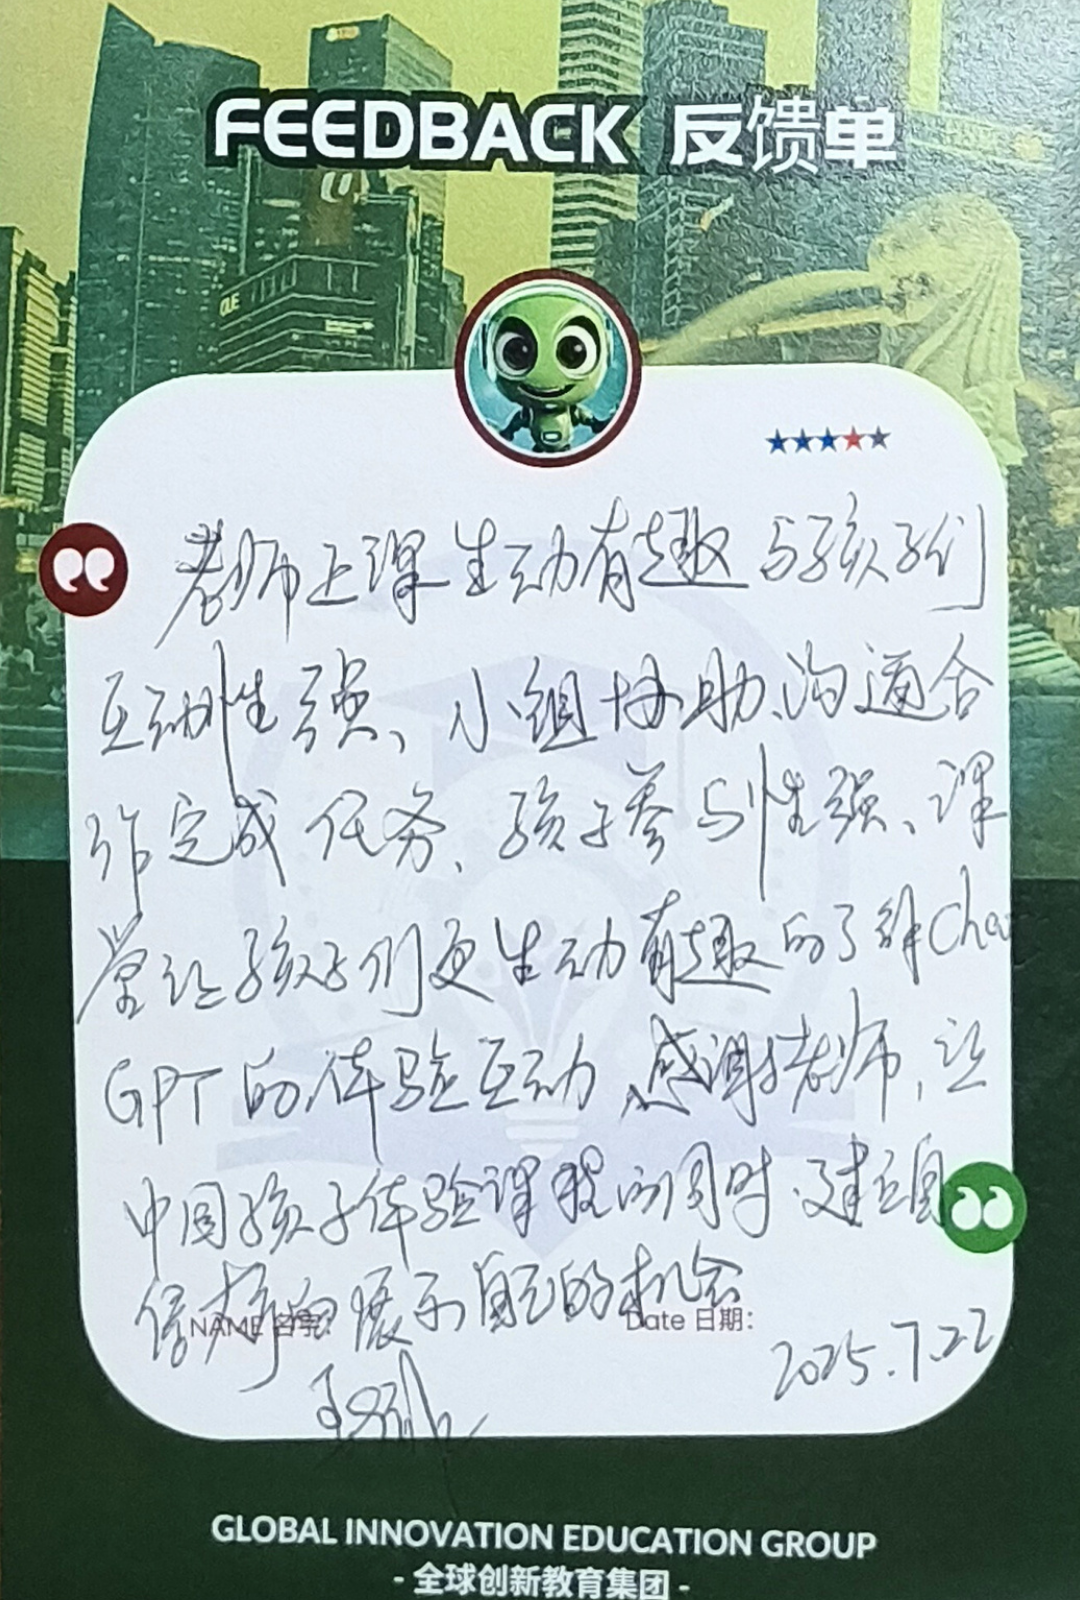 FEEDBACK 反馈单
老师上课生动有趣与孩子们
互动性强、小组协助、沟通合
作完成任务、孩子参与性强、课
堂让孩子们更生动有趣的了解Chat
GPT的体验互动、感谢老师,让
中国孩子体验课程的同时、建立自
信 展示自己的机会
NAME 名字:
Date 日期:
2025.7.22
王
GLOBAL INNOVATION EDUCATION GROUP
- 全球创新教育集团 -